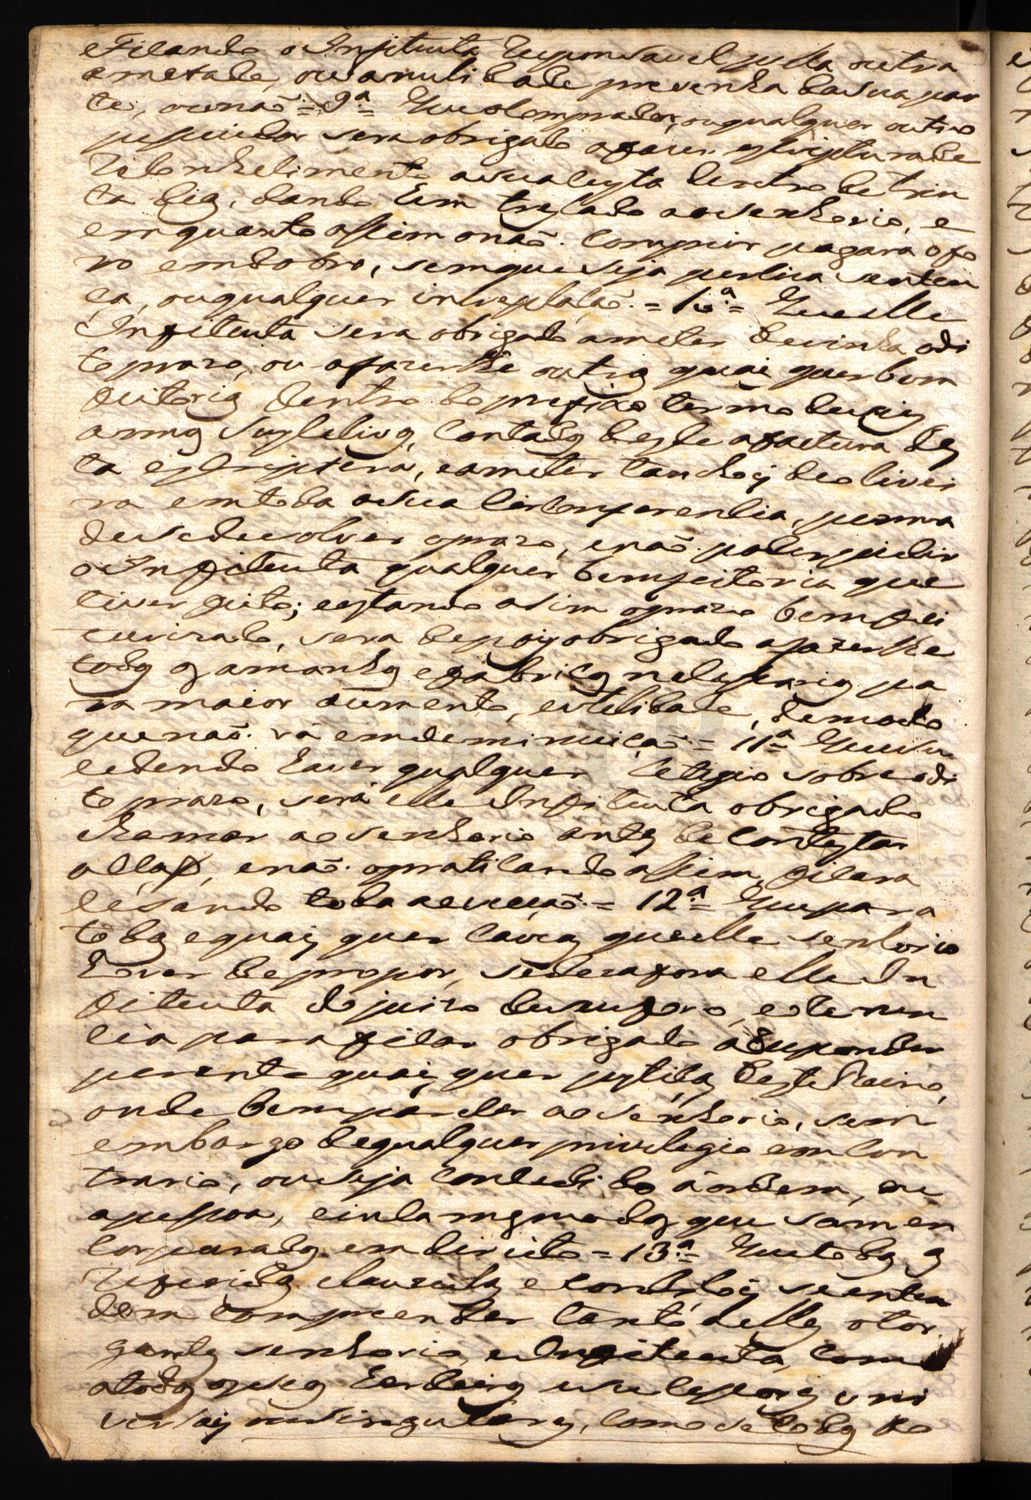 eficando o Infiteuta responsavel pella outra
ametade, ou a nulidade provenha da sua par
te, ou não = 9.ª = Que o comprador, ou qualquer outro
pessuidor sera obrigado a fazer escriptura de
reconhecimento a sua custa dentro de trin
ta dias, dando hum treslado ao senhorio, e
emquanto assim o não comprir pagara o fo
ro em dobro, sem que seja perciza senten
ça, ou qualquer interpelação = 10.ª = Que elle
Infiteuta sera obrigado a meter de vinha o di
to prazo, ou a fazerlhe outras quais quer bem
feitorias dentro do prefixo termo de seis
annos sucesivos, contados desde a factura des
ta escriptura, e a meter tanchois de olivei
ra em toda a sua circomferencia, penna
de se devolver o prazo, e não poder pedir
o Infiteuta qualquer bemfeitoria que
tiver feito; e estando asim o prazo bemfei
turizado, sera depois obrigado a fazerlhe
todos os amanhos e fabricos necesarios pa
ra maior aumento, e utelidade, de modo
que não vá em deminuicão = 11.ª = Que su
cedendo haver qualquer letigio sobre o di
to prazo, será elle Infiteuta obrigado
chamar ao senhorio antes de contestar
a acção, e não o praticando assim, ficara
cesando toda a evicção = 12.ª = Que para
todas e quais quer cauzas que elle senhorio
houver de propor, se dezafora elle In
fiteuta do juizo de seu foro, e o renun
cia para ficar obrigado a responder
perante quais quer justiças deste Reino,
onde bem parecer ao senhorio, sem
embargo de qualquer privilegio em con
trario, ou seja concedido á ordem, ou
a pessoa, e inda mesmo dos que sam en
corporados em direito = 13.ª = Que todas as
referidas clauzulas e condiçois se enten
dem comprender tanto a elles otor
gantes senhorio, e Infiteuta, como
a todos os seus herdeiros e sucessores uni
versais ou singulares, como se todas de